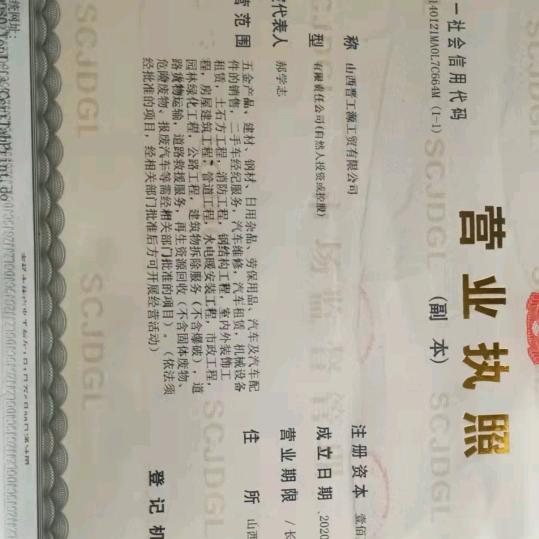 营业执照
(副 本)
一社会信用代码
140121MA0L7C664M (1-1)
称 山西晋工源工贸有限公司
型 有限责任公司(自然人投资或控股)
代表人 郝学志
范围 五金产品、建材、钢材、日用杂品、劳保用品、汽车及汽车配
件的销售,二手车经纪服务,汽车维修,汽车租赁,机械设备
租赁,土石方工程,消防工程,钢结构工程,室内外装饰工
程,房屋建筑工程,管道工程,水电暖安装工程,市政工程,
园林绿化工程,公路工程,建筑物拆除服务(不含爆破),道
路货物运输,道路救援服务,再生资源回收(不含固体废物、
危险废物、报废汽车等需经相关部门批准的项目)。(依法须
经批准的项目,经相关部门批准后方可开展经营活动)
注册资本 壹佰
成立日期 2020
营业期限 / 长
住 所 山西
登记机
SCJDGL
SCJDGL
SCJDGL
SCJDGL
SCJDGL